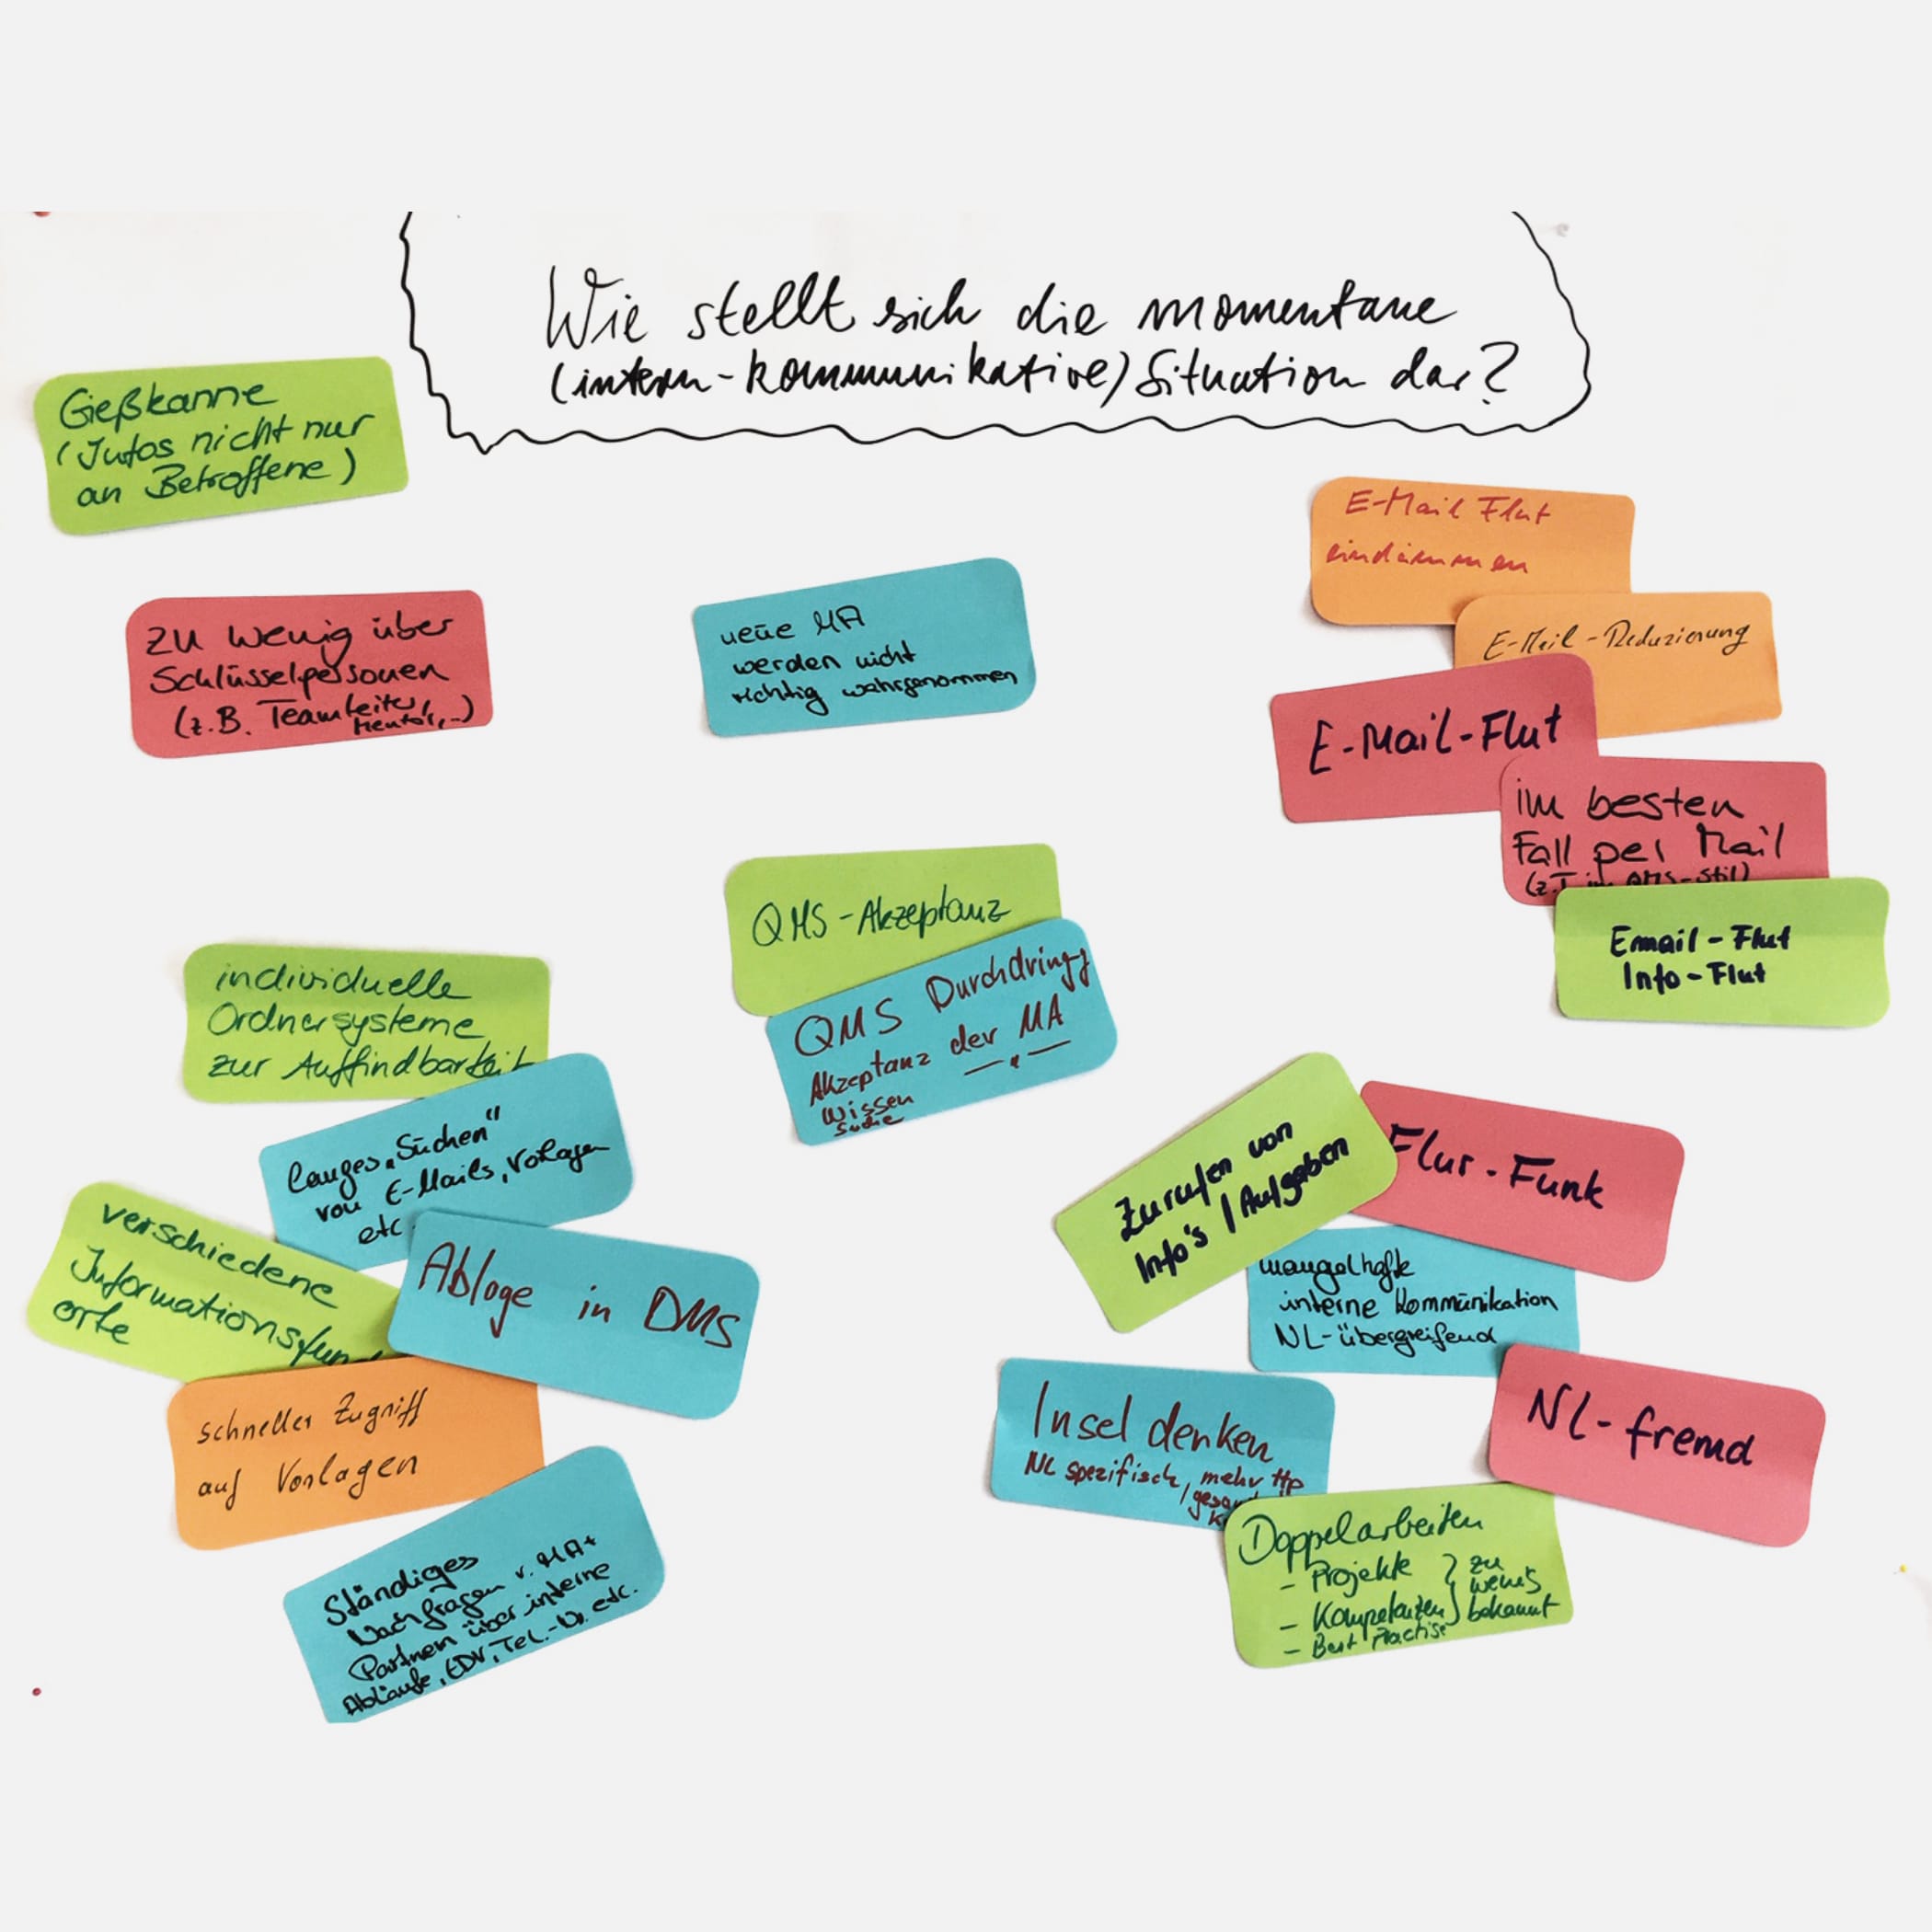 Wie stellt sich die momentane
(intern-kommunikative) Situation dar?
Gießkanne
(Infos nicht nur
an Betroffene)
zu wenig über
Schlüsselpersonen
(z.B. Teamleiter,
Mentor,..)
neue MA
werden nicht
richtig wahrgenommen
E-Mail Flut
eindämmen
E-Mail-Reduzierung
E-Mail-Flut
im besten
Fall per Mail
(z.T. im QMS-Stil)
Email-Flut
Info-Flut
QMS-Akzeptanz
QMS Durchdringg
Akzeptanz der MA
Wissen
Suche
individuelle
Ordnersysteme
zur Auffindbarkeit
langes „Suchen"
von E-Mails, Vorlagen
etc
verschiedene
Informations
orte
Ablage in DMS
schneller Zugriff
auf Vorlagen
Ständiges
Nachfragen v. MA+
Partnern über interne
Abläufe, EDV, Tel.-N. etc.
Zurufen von
Info's / Aufgaben
Flur-Funk
mangelhafte
interne Kommunikation
NL-übergreifend
Insel denken
NL spezifisch, mehr
NL-fremd
Doppelarbeiten
- Projekte } zu
wenig
- Kompetenzen } bekannt
- Best Practise